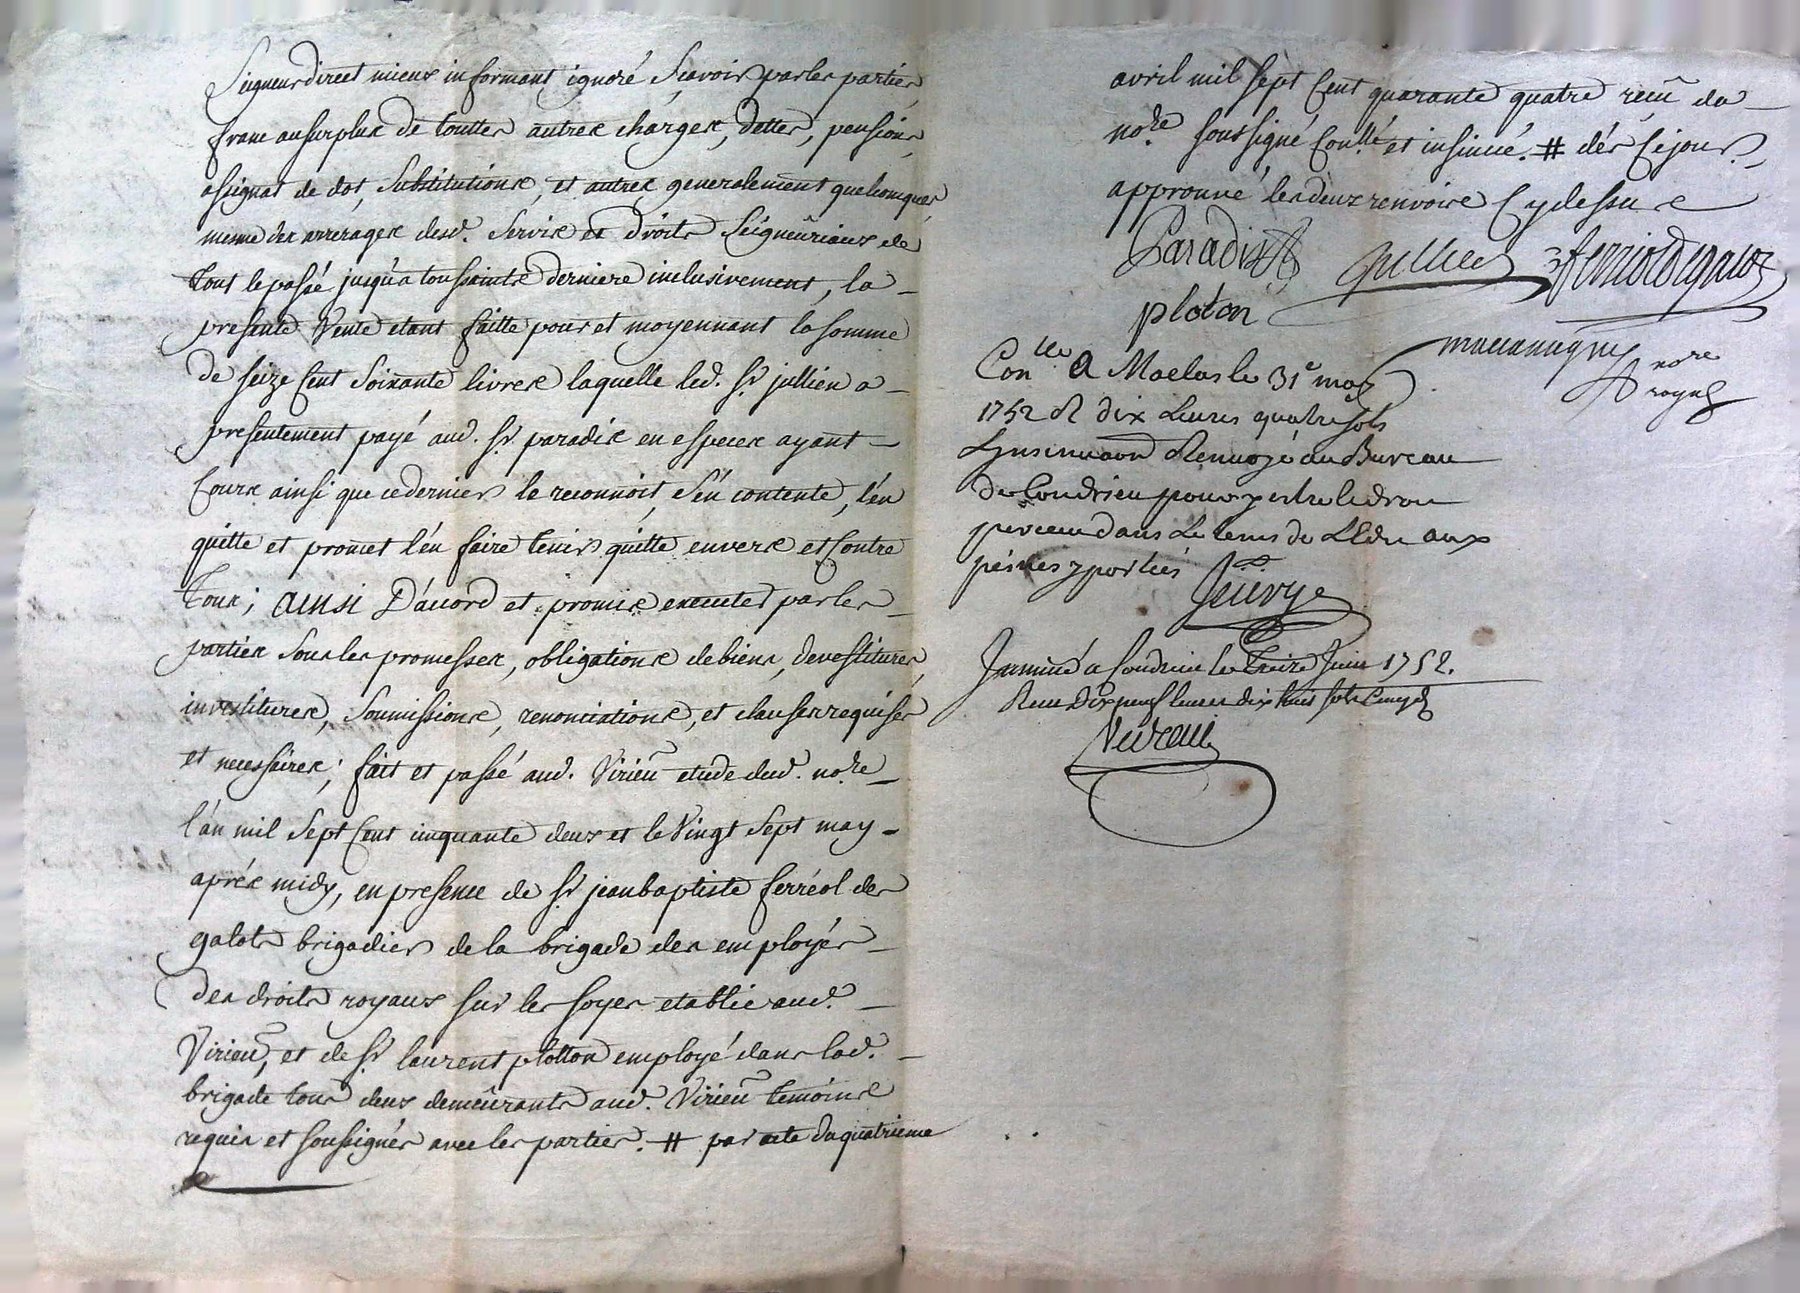 Seigneur direct mieux informant ignoré Sçavoir par les parties,
franc au surplus de touttes autres charges, dettes, pensions,
assignat de dot, Substitutions, et autres generalement quelconques
mesme des arrerages desd. Servis et droits Seigneuriaux de
tout le passé jusqu'a toussaints derniere inclusivement, la
presente Vente etant faitte pour et moyennant la somme
de seize Cent Soixante livres laquelle led. Sr. jullien a
presentement payé aud. Sr. paradis en especes ayant
Cours ainsi que ce dernier le reconnoit, s'en contente, l'en
quitte et promet l'en faire tenir quitte envers et Contre
Tous; AINSI D'acord et promis executer par les
parties Sous les promesses, obligations de biens, devestitures,
investitures, Soumissions, renonciations, et clauses requises
et necessaires; fait et passé aud. Virieu etude dud. no.re
l'an mil Sept Cent cinquante deux et le Vingt Sept may
aprés midy, en presence de Sr. jean baptiste ferréol des
galots brigadier de la brigade des employés
des droits royaux sur les soyes etablie aud.
Virieu, et de Sr. laurent plotton employé dans lad.
brigade tous deux demeurants aud. Virieu temoins
requis et soussignés avec les parties. # par acte du quatrieme
avril mil sept Cent quarante quatre reçu du
no.re soussigné Con.llé et insinué. # dés Ce jour.
approuvé les deux renvois Cy dessus
Paradis Jullien ferriol degalot
ploton
no.re royal
Con.llé A Maelas le 31e may
1752 R dix Livres quatre sols
L'insinuaon Renvoyé au Bureau
de Condrieu pour y estre le droit
perceu dans Le tems de L'Edit aux
peines y portées
Insinué a Condrieu le Treize Juin 1752.
Receu Dix neuf livres dix huit sols